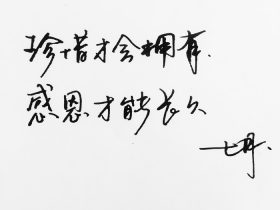 珍惜才会拥有.
感恩才能长久